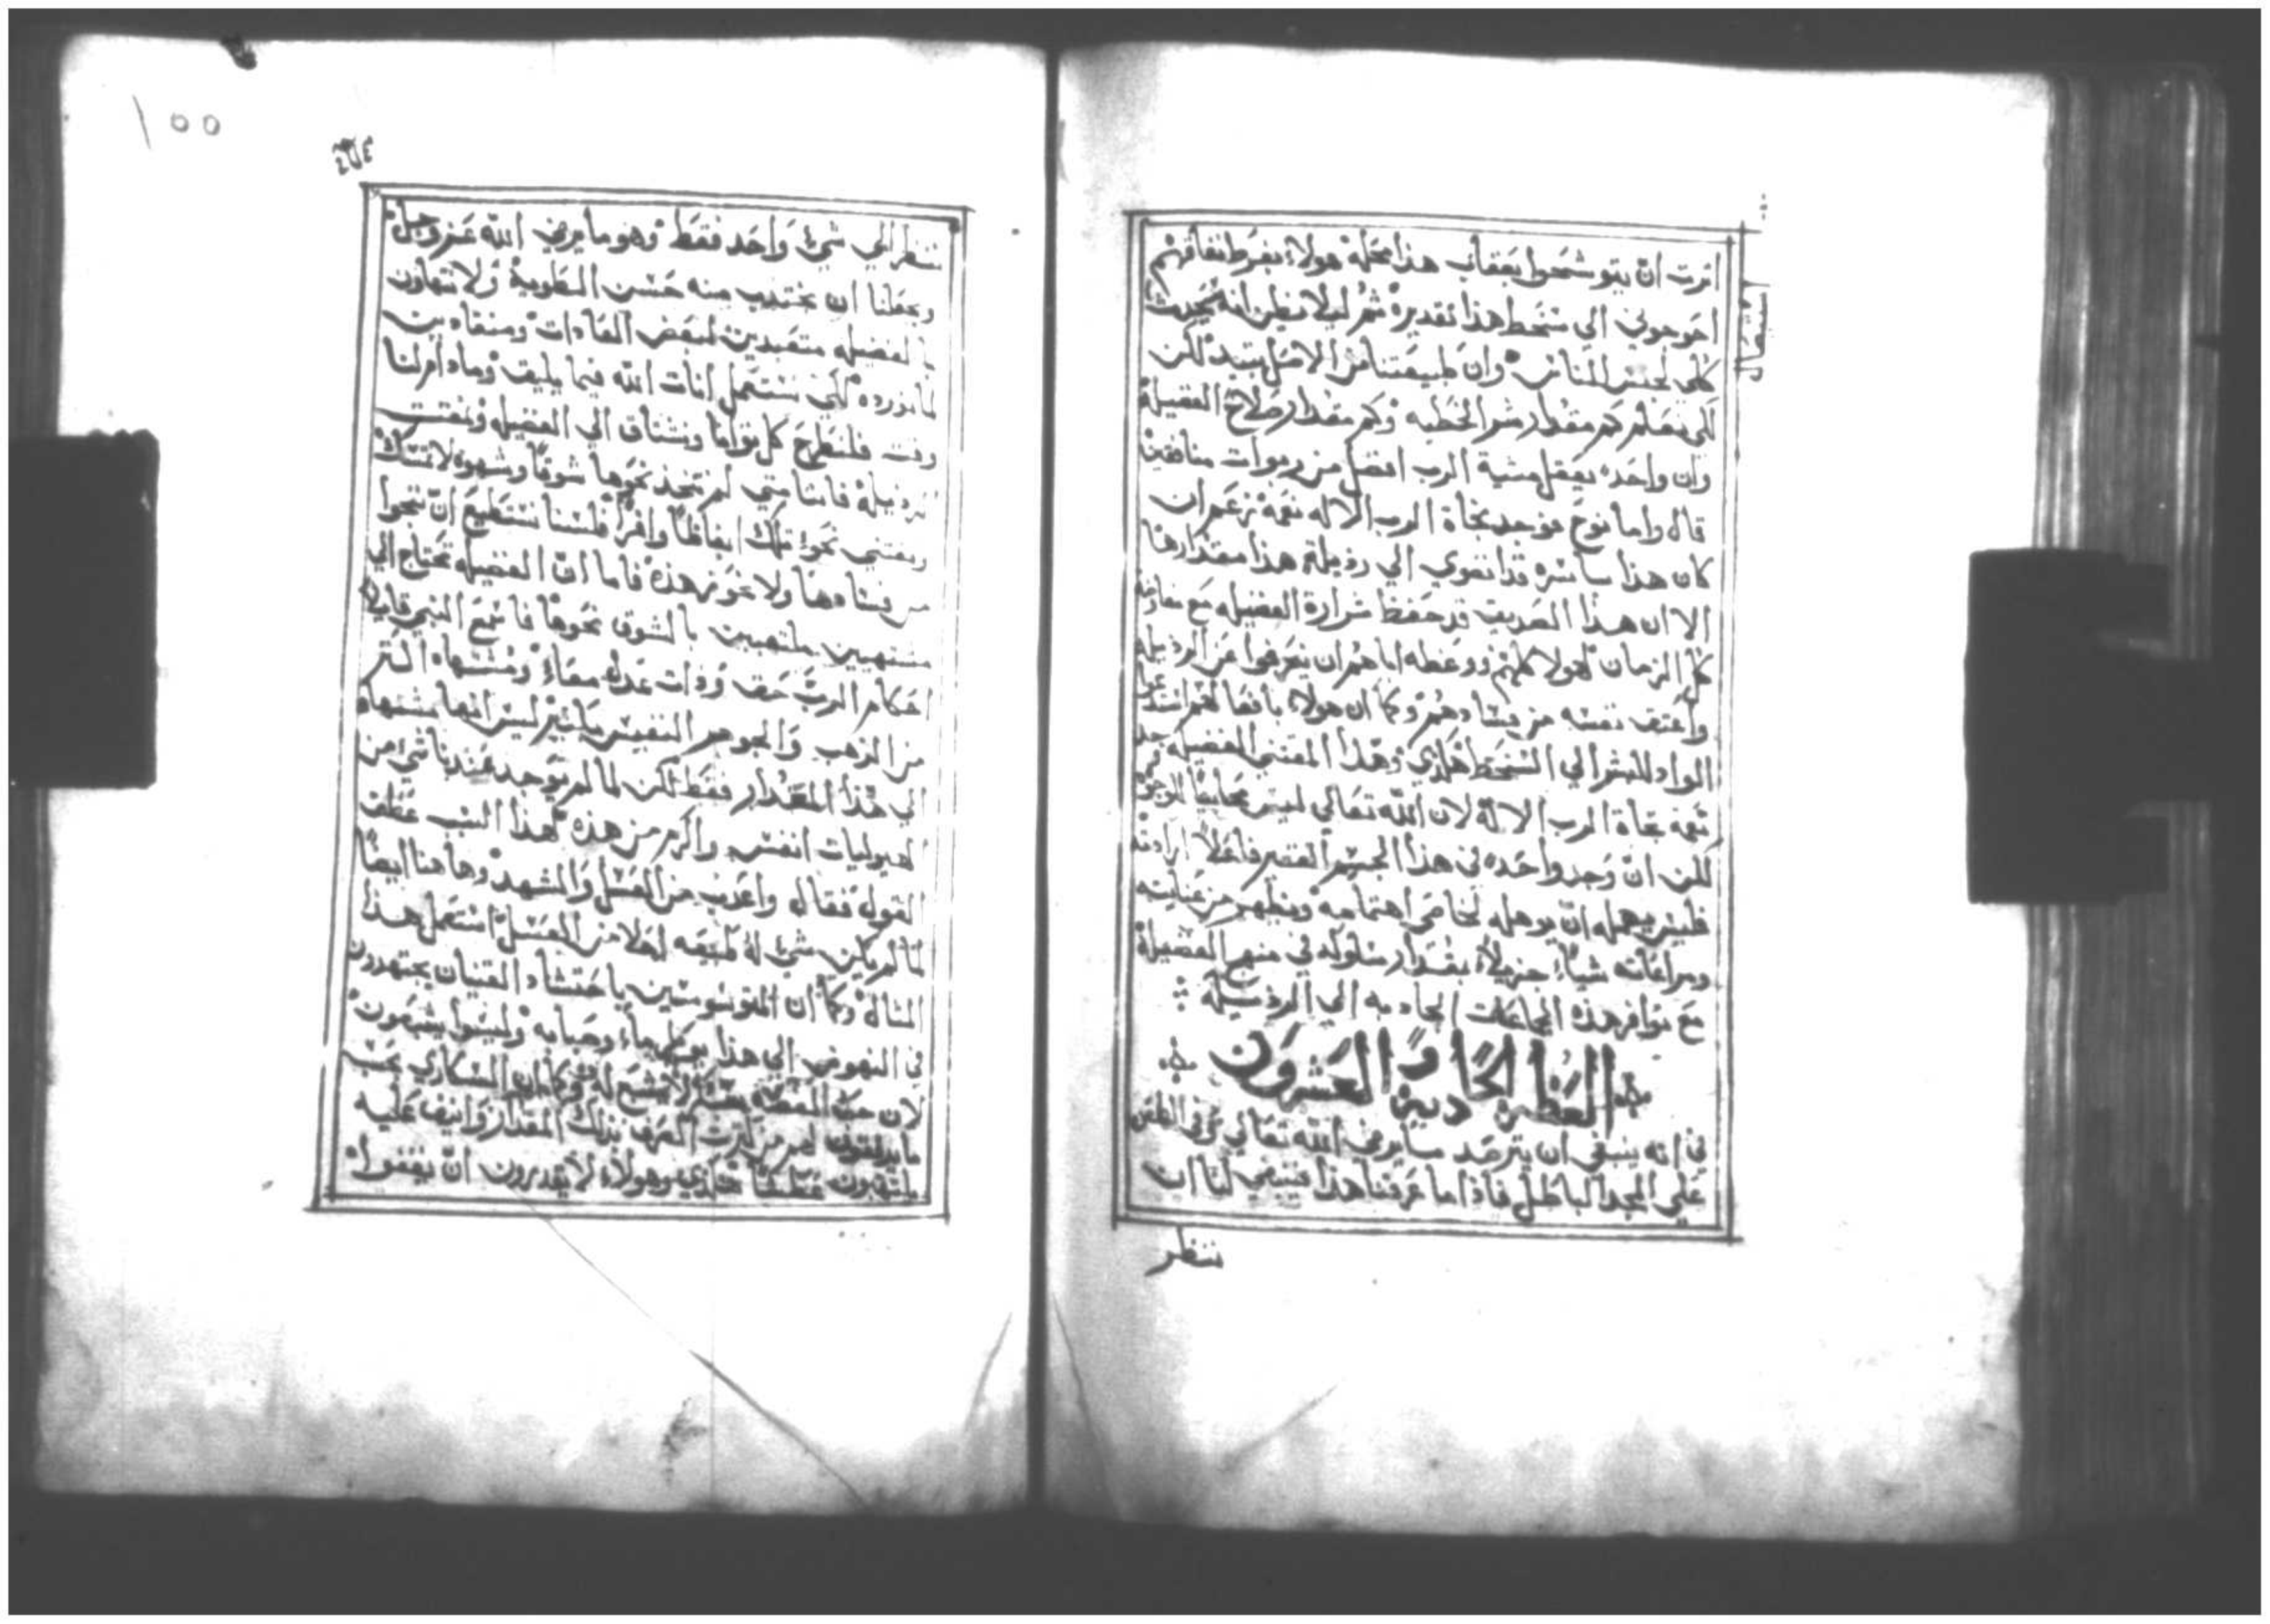 امرت ان يتوشحوا بعقاب هذا محله هولاء بفرط نفاقهم
احوجوني الي سخط هذا تقديره ثم ليلا نظن انه يحدث
كلي لجنس الناس وان طبيعتنا من الاصل لكن
لكي نعلم كم مقدار شر الخطيه وكم مقدار صلاح الفضيلة
وان واحده يعمل مشية الرب افضل من ربوات منافقين
قال واما نوح فوجد تجاة الرب الاله نعمة نزعم ان
كان هذا سايره قد انضوي الي رذيلة هذا مقدارها
الا ان هذا الصديق قد حفظ شرارة الفضيله مع
كل الزمان لهولا كلهم ووعظه اياهم ان ينعرفوا عن الرذيله
واعتق نفسه من فسادهم وكما ان هولاء بافعالهم
الواد للبشر الي السخط هكذي وهذا المقتني الفضيله وجد
نعمة تجاة الرب الاله لان الله تعالي ليس محابيا للوجوه
لكن ان وجد واحده في هذا الجسم فاعلا ارادته
فليس يهمله ان يوهله لخاص اهتمامه ويظهر من عنايته
ومراعاته شياء جزيلاء بمقدار سلوكه في منهج الفضيلة
مع توافر هذه الجماعات الحاديه الي الرذيلة
العظة الحادية والعشرون
في انه ينبغي ان يترصد ما يرضي الله تعالي وفي الطعن
علي المجد الباطل فاذا ما عرفنا هذا فينبغي لنا ان
ننظر
١٥٥
ننظر الي شي واحد فقط وهو ما يرضي الله عز وجل
ويجعلنا ان نجتذب منه حسن الطوية ولا نتهاون
بالفضيله متعبدين لبعض العادات ومنقادين
لما نورده لكي نستعمل انات الله فيما يليق وما دام لنا
وقت فلنطرح كل نوانا ونشتاق الي الفضيله ونمقت
الرذيلة فاننا متي لم نتخذ نحوها شوقا وشهوه لا تمسك
ونقتني نحو تلك ابغاضا وافرا فلسنا نستطيع ان ننجوا
من فسادها ولا نحوز هذه فاما ان الفضيله تحتاج الي
مشتهيين ملتهبين بالشوق نحوها فاسمع النبي قايلا
احكام الرب حق وذات عدله معاء ومشتهاه اكثر
من الذهب والجوهر النفيس ليس انها مشتهاه
الي هذا المقدار فقط لكن لما لم توجد عندنا شي من
الهيوليات انفس واكرم من هذه لهذا السبب عطف
القول فقال واعذب من العسل والشهد وها هنا ايضا
لما لم يكن شي له طبيعه احلا من العسل استعمل هذا
المثال وكما ان المتوسوسين باحتشاد القنيان يجتهدون
في النهوض الي هذا بكل جاء وصبابه وليسوا يشبعون
لان حب الفضه لا يشبع له وكما ان السكاري بحسب
ما يدفقون الخمر بذلك المقدار وانيف عليه
يلتهبون عطشا هكذي وهولاء لا يقدرون ان يقفوا